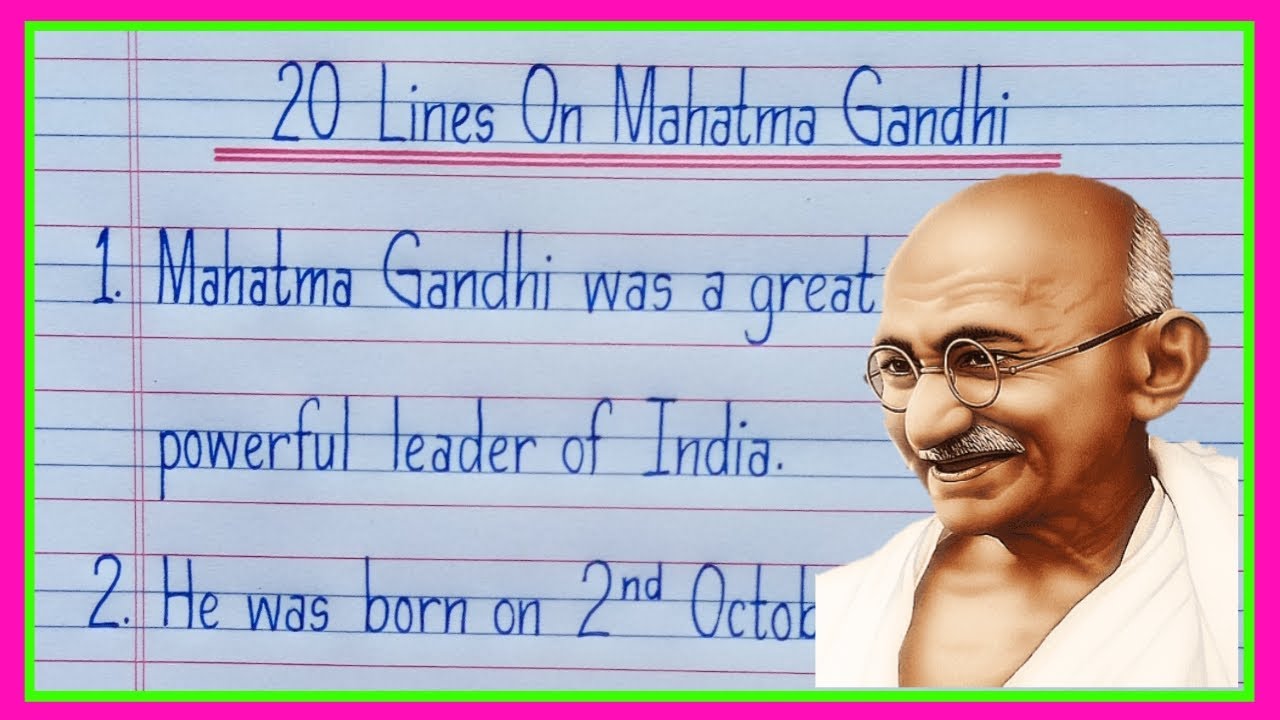 20 Lines On Mahatma Gandhi
1. Mahatma Gandhi was a great
powerful leader of India.
2. He was born on 2nd Octob